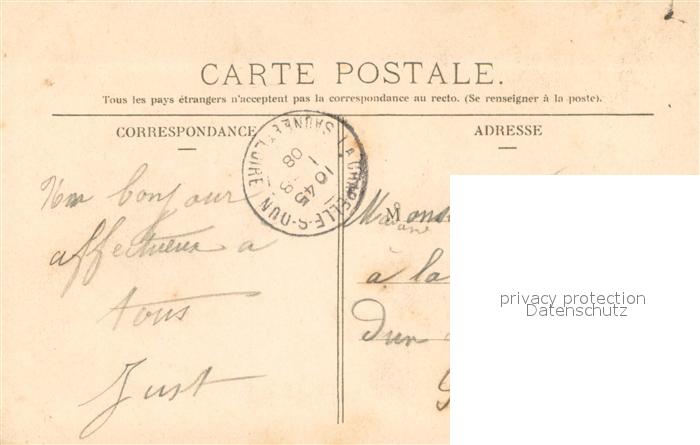 CARTE POSTALE.
Tous les pays étrangers n'acceptent pas la correspondance au recto. (Se renseigner à la poste).
CORRESPONDANCE
ADRESSE
LA CHAPELLE-S-DUN
SAÔNE ET LOIRE
10 45
08
Un bonjour
affectueux a
tous
Just
M
à la
Dun
privacy protection
Datenschutz